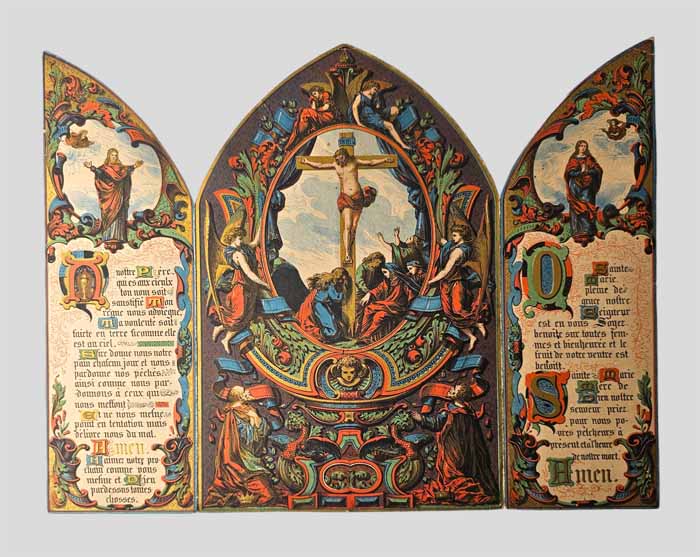 Nostre Père
qui es aux cieulx
ton nom soit
sanctifié Ton
règne nous advieigne
Ta vonlenté soit
faicte en terre si comme elle
est au ciel.
Sire donne nous nostre
pain chascun jour et nous
pardonne nos péchés
ainsi comme nous par-
donnons à ceux qui
nous meffont
Et ne nous meine
point en tentation mais
délivre nous du mal.
Amen.
Haimez notre pro
chain comme vous
mesme et Dieu
pardessus toutes
choses.
INRI
O Sainte
Marie
pleine de
grace nostre
Seigneur
est en vous Soyez
benoite sur toutes fem
mes et bienheurée et le
fruit de votre ventre est
benoit.
Sainte Marie
Mère de
Dieu nottre
seuveur priez
pour nous po-
vres péicheurs à
présent et à l'heure
de nostre mort.
Amen.